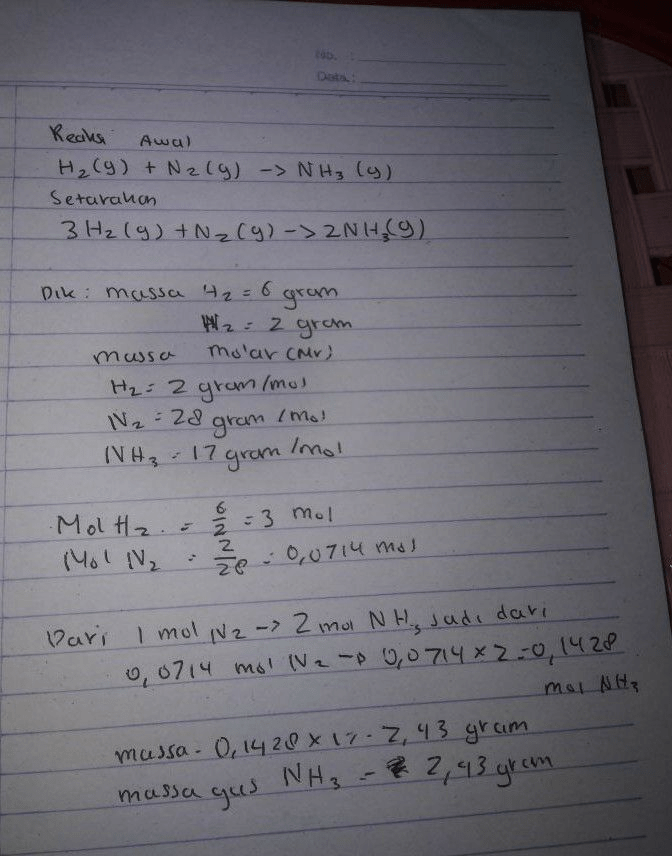 No. :
Date :
Reaksi Awal
H2(g) + N2(g) -> NH3(g)
Setarakan
3H2(g) + N2(g) -> 2NH3(g)
Dik : massa H2 = 6 gram
N2 = 2 gram
massa molar (Mr)
H2 = 2 gram/mol
N2 = 28 gram/mol
NH3 = 17 gram/mol
Mol H2 = 6/2 = 3 mol
Mol N2 = 2/28 = 0,0714 mol
Dari 1 mol N2 -> 2 mol NH3 Jadi dari
0,0714 mol N2 -> 0,0714 x 2 = 0,1428
mol NH3
massa = 0,1428 x 17 = 2,43 gram
massa gas NH3 = 2,43 gram